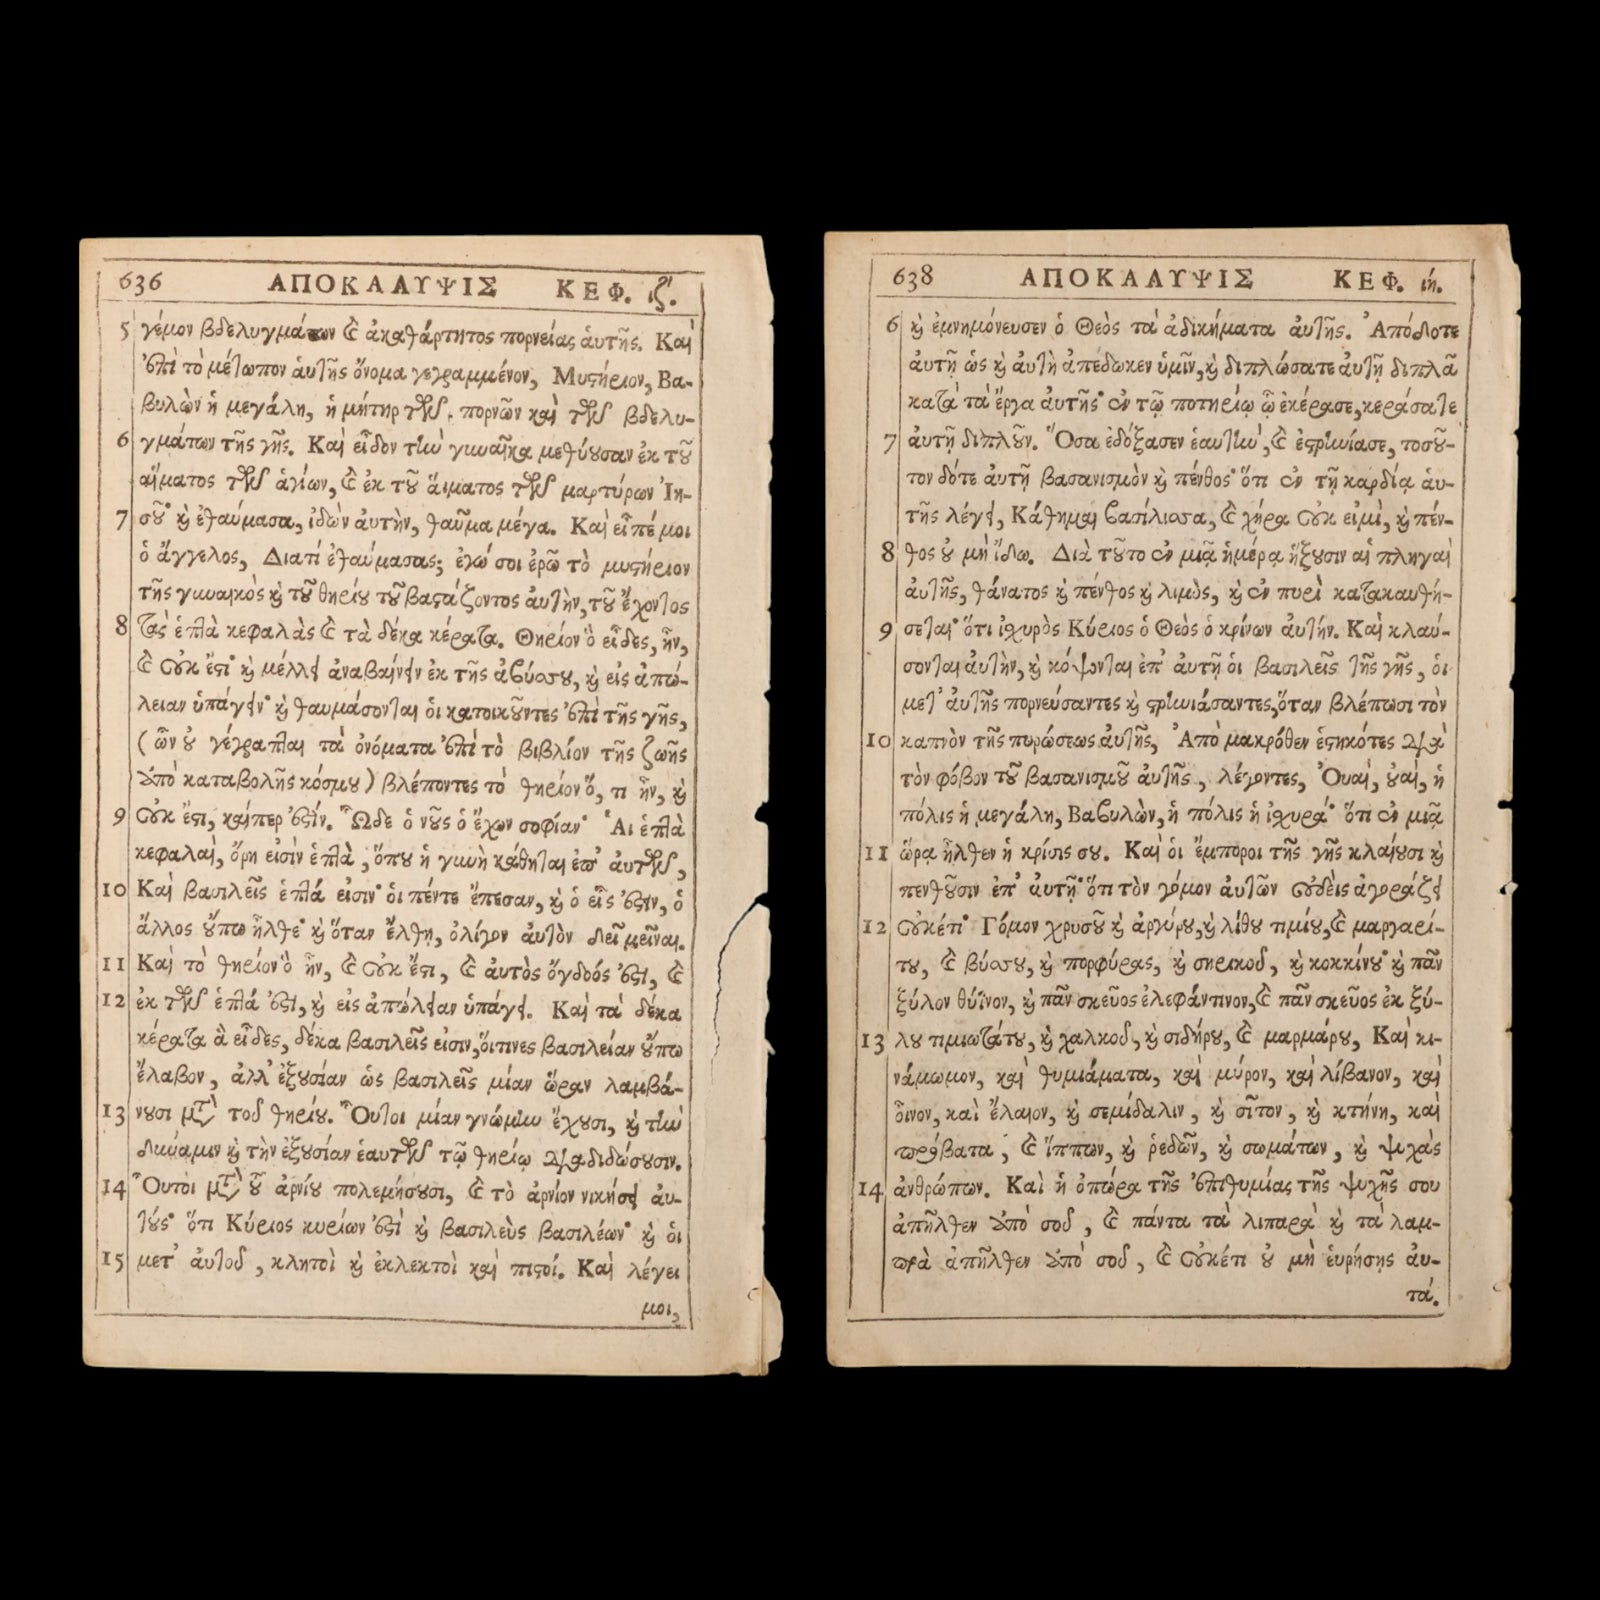 636 ΑΠΟΚΑΛΥΨΙΣ ΚΕΦ. ιζ΄.
5 γέμον βδελυγμάτων καὶ ἀκαθάρτητος πορνείας ἁυτῆς. Καὶ
ἐπὶ τὸ μέτωπον ἁυτῆς ὄνομα γεγραμμένον, Μυστήριον, Βα-
βυλὼν ἡ μεγάλη, ἡ μήτηρ τῶν πορνῶν καὶ τῶν βδελυ-
6 γμάτων τῆς γῆς. Καὶ εἶδον τὴν γυναῖκα μεθύουσαν ἐκ τοῦ
αἵματος τῶν ἁγίων, καὶ ἐκ τοῦ ἅιματος τῶν μαρτύρων Ἰη-
7 σοῦ· καὶ ἐθαύμασα, ἰδὼν ἀυτὴν, θαῦμα μέγα. Καὶ εἶπέ μοι
ὁ ἄγγελος, Διατί ἐθαύμασας; ἐγώ σοι ἐρῶ τὸ μυστήριον
τῆς γυναικὸς καὶ τοῦ θηρίου τοῦ βαστάζοντος ἀυτὴν, τοῦ ἔχοντος
8 τὰς ἑπτὰ κεφαλὰς καὶ τὰ δέκα κέρατα. Θηρίον ὃ εἶδες, ἦν,
καὶ οὐκ ἔστι· καὶ μέλλει ἀναβαίνειν ἐκ τῆς ἀβύσσου, καὶ εἰς ἀπώ-
λειαν ὑπάγειν· καὶ θαυμάσονται ὁι κατοικοῦντες ἐπὶ τῆς γῆς,
(ὧν οὐ γέγραπται τὰ ὀνόματα ἐπὶ τὸ βιβλίον τῆς ζωῆς
ἀπὸ καταβολῆς κόσμου) βλέποντες τὸ θηρίον ὅ, τι ἦν, καὶ
9 οὐκ ἔστι, καίπερ ἐστίν. Ὧδε ὁ νοῦς ὁ ἔχων σοφίαν· Ἁι ἑπτὰ
κεφαλαὶ, ὄρη εἰσὶν ἑπτὰ, ὅπου ἡ γυνὴ κάθηται ἐπ' ἀυτῶν,
10 Καὶ βασιλεῖς ἑπτά εἰσιν· ὁι πέντε ἔπεσαν, καὶ ὁ εἷς ἐστιν, ὁ
ἄλλος οὔπω ἦλθε· καὶ ὅταν ἔλθῃ, ὀλίγον ἀυτὸν δεῖ μεῖναι.
11 Καὶ τὸ θηρίον ὃ ἦν, καὶ οὐκ ἔστι, καὶ ἀυτὸς ὄγδοός ἐστι, καὶ
12 ἐκ τῶν ἑπτά ἐστι, καὶ εἰς ἀπώλειαν ὑπάγει. Καὶ τὰ δέκα
κέρατα ἃ εἶδες, δέκα βασιλεῖς εἰσιν, ὅιτινες βασιλείαν οὔπω
ἔλαβον, ἀλλ' ἐξουσίαν ὡς βασιλεῖς μίαν ὥραν λαμβά-
13 νουσι μετὰ τοῦ θηρίου. Οὗτοι μίαν γνώμην ἔχουσι, καὶ τὴν
δύναμιν καὶ τὴν ἐξουσίαν ἑαυτῶν τῷ θηρίῳ διαδιδώσουσιν.
14 Οὗτοι μετὰ τοῦ ἀρνίου πολεμήσουσι, καὶ τὸ ἀρνίον νικήσει ἀυ-
τούς· ὅτι Κύριος κυρίων ἐστὶ καὶ βασιλεὺς βασιλέων· καὶ ὁι
15 μετ' ἀυτοῦ, κλητοὶ καὶ ἐκλεκτοὶ καὶ πιστοί. Καὶ λέγει
μοι,
638 ΑΠΟΚΑΛΥΨΙΣ ΚΕΦ. ιή.
6 καὶ ἐμνημόνευσεν ὁ Θεὸς τὰ ἀδικήματα ἀυτῆς. Ἀπόδοτε
ἀυτῇ ὡς καὶ ἀυτὴ ἀπέδωκεν ὑμῖν, καὶ διπλώσατε ἀυτῇ διπλᾶ
κατὰ τὰ ἔργα ἀυτῆς· ἐν τῷ ποτηρίῳ ᾧ ἐκέρασε, κεράσατε
7 ἀυτῇ διπλοῦν. Ὅσα ἐδόξασεν ἑαυτὴν, καὶ ἐστρηνίασε, τοσοῦ-
τον δότε ἀυτῇ βασανισμὸν καὶ πένθος· ὅτι ἐν τῇ καρδίᾳ ἁυ-
τῆς λέγει, Κάθημαι βασίλισσα, καὶ χήρα οὐκ εἰμὶ, καὶ πέν-
8 θος οὐ μὴ ἴδω. Διὰ τοῦτο ἐν μιᾷ ἡμέρᾳ ἥξουσιν αἱ πληγαὶ
ἀυτῆς, θάνατος καὶ πένθος καὶ λιμὸς, καὶ ἐν πυρὶ κατακαυθή-
9 σεται· ὅτι ἰσχυρὸς Κύριος ὁ Θεὸς ὁ κρίνων ἀυτήν. Καὶ κλαύ-
σονται ἀυτὴν, καὶ κόψονται ἐπ' ἀυτῇ ὁι βασιλεῖς τῆς γῆς, ὁι
μετ' ἀυτῆς πορνεύσαντες καὶ στρηνιάσαντες, ὅταν βλέπωσι τὸν
10 καπνὸν τῆς πυρώσεως ἀυτῆς, Ἀπὸ μακρόθεν ἑστηκότες διὰ
τὸν φόβον τοῦ βασανισμοῦ ἀυτῆς, λέγοντες, Ὀυαὶ, οὐαὶ, ἡ
πόλις ἡ μεγάλη, Βαβυλὼν, ἡ πόλις ἡ ἰσχυρά· ὅτι ἐν μιᾷ
11 ὥρᾳ ἦλθεν ἡ κρίσις σου. Καὶ ὁι ἔμποροι τῆς γῆς κλαίουσι καὶ
πενθοῦσιν ἐπ' ἀυτῇ· ὅτι τὸν γόμον ἀυτῶν οὐδεὶς ἀγοράζει
12 οὐκέτι· Γόμον χρυσοῦ καὶ ἀργύρου, καὶ λίθου τιμίου, καὶ μαργαρί-
του, καὶ βύσσου, καὶ πορφύρας, καὶ σηρικοῦ, καὶ κοκκίνου· καὶ πᾶν
ξύλον θύϊνον, καὶ πᾶν σκεῦος ἐλεφάντινον, καὶ πᾶν σκεῦος ἐκ ξύ-
13 λου τιμιωτάτου, καὶ χαλκοῦ, καὶ σιδήρου, καὶ μαρμάρου, Καὶ κι-
νάμωμον, καὶ θυμιάματα, καὶ μύρον, καὶ λίβανον, καὶ
ὄινον, καὶ ἔλαιον, καὶ σεμίδαλιν, καὶ σῖτον, καὶ κτήνη, καὶ
πρόβατα, καὶ ἵππων, καὶ ῥεδῶν, καὶ σωμάτων, καὶ ψυχὰς
14 ἀνθρώπων. Καὶ ἡ ὀπώρα τῆς ἐπιθυμίας τῆς ψυχῆς σου
ἀπῆλθεν ἀπὸ σοῦ, καὶ πάντα τὰ λιπαρὰ καὶ τὰ λαμ-
πρὰ ἀπῆλθεν ἀπὸ σοῦ, καὶ οὐκέτι οὐ μὴ ἑυρήσῃς ἀυ-
τά.